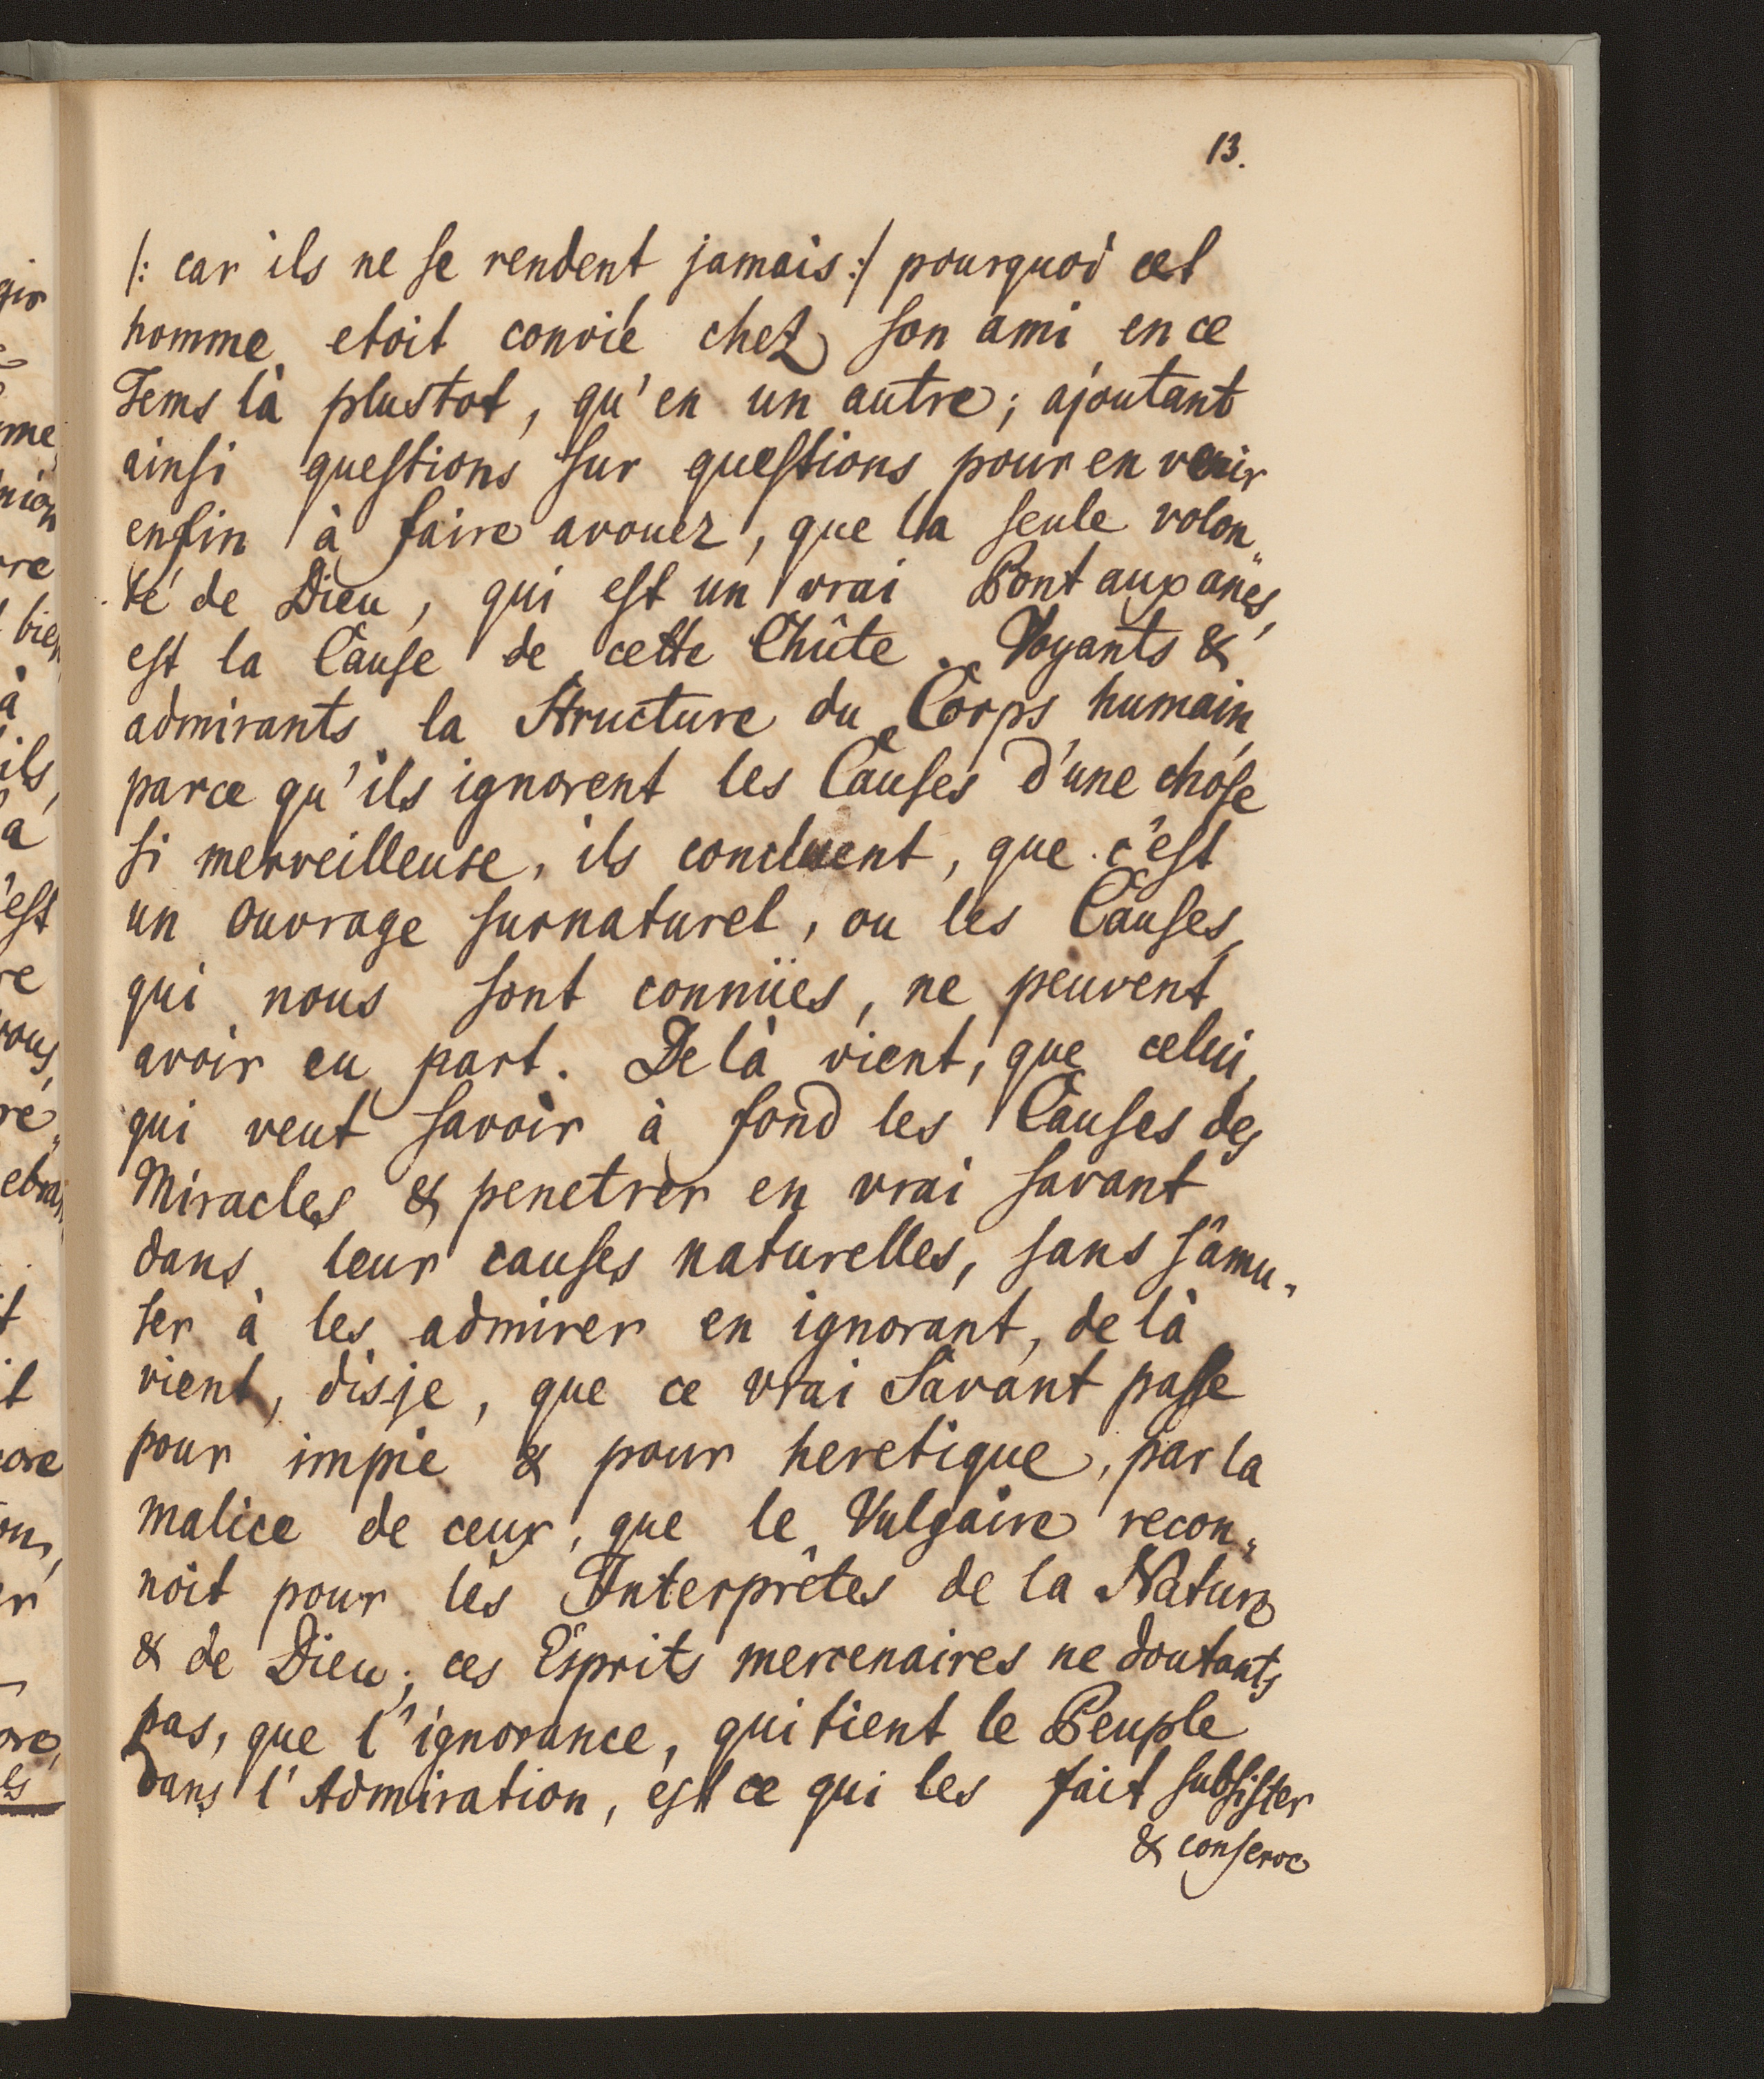 13.
/: car ils ne se rendent jamais :/ pourquoi cet
homme etoit convié chez son ami en ce
Tems là plustot, qu'en un autre; ajoutant
ainsi questions sur questions pour en venir
enfin à faire avouer, que la seule volon„
té de Dieu, qui est un vrai Pont aux anes,
est la Cause de cette Chûte. Voyants &
admirants la Structure du Corps humain,
parce qu'ils ignorent les Causes d'une chose
si merveilleuse, ils concluent, que c'est
un Ouvrage surnaturel, ou les Causes,
qui nous sont connües, ne peuvent
avoir eu part. De là vient, que celui,
qui veut savoir à fond les Causes des
Miracles & penetrer en vrai savant
dans leur causes naturelles, sans s'amu„
ser à les admirer en ignorant, de là
vient, dis-je, que ce vrai Savant passe
pour impie & pour heretique, par la
malice de ceux, que le Vulgaire recon„
noit pour les Interprêtes de la Nature
& de Dieu; ces Esprits mercenaires ne doutants
pas, que l'ignorance, qui tient le Peuple
dans l'Admiration, est ce qui les fait subsister
& conserve